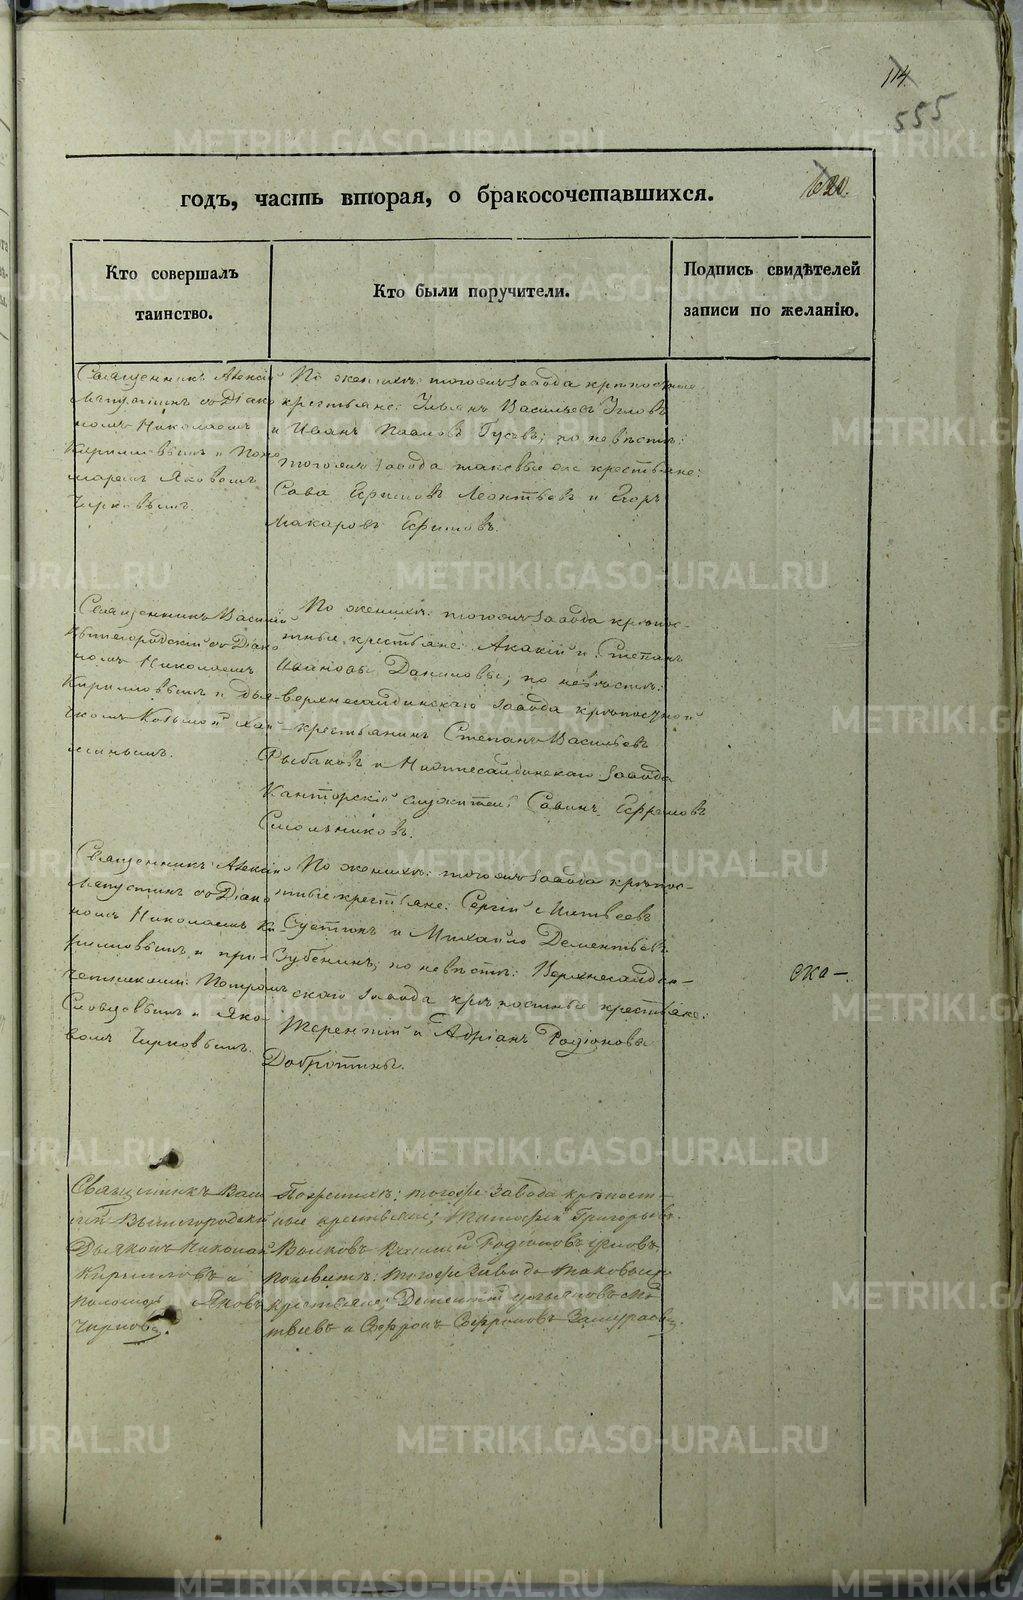 114
555
годъ, часть вторая, о бракосочетавшихся.
620.
Кто совершалъ
таинство.
Кто были поручители.
Подпись свидѣтелей
записи по желанію.
Священникъ Алексій
съ Діако
номъ Николаемъ
Кирилловымъ и Поно
маремъ Яковомъ
Чирковымъ.
По женихѣ: тогожъ завода крѣпостные
крестьяне: Васильевъ
и Иванъ Павловъ Гусевъ; по невѣстѣ:
тогожъ завода таковые же крестьяне:
Сава Ефимовъ Леонтьевъ и Егоръ
Макаровъ Ефимовъ.
Священникъ Василій
Вышегородскій съ Діако
номъ Николаемъ
Кирилловымъ и дья-
чкомъ Козьмой
По женихѣ: тогожъ завода крѣпос-
тные крестьяне: Акакій и Степанъ
Ивановы Даниловы; по невѣстѣ:
верхнесалдинскаго завода крѣпостной
крестьянинъ Степанъ Васильевъ
Рыбаковъ и Нижнесалдинскаго завода
Канторскій служитель Савинъ Ефремовъ
Смольниковъ.
Священникъ Алексій
съ Діако
номъ Николаемъ Ки
рилловымъ и при-
четниками: Петромъ
Словцовымъ и Яко
вомъ Чирковымъ.
По женихѣ: тогожъ завода крѣпос-
тные крестьяне: Сергій Матвеевъ
и Михайло Дементьевъ
Зубенинъ; по невѣстѣ: Верхнесалдин-
скаго завода крѣпостные крестьяне:
Терентій и Адріанъ Родіоновы
Добротины.
Священникъ Васи
лій Вышегородскій
Дьяконъ Николай
Кирилловъ и
пономарь Яковъ
Чирковъ.
По женихѣ: тогоже завода крѣпост-
ные крестьяне; Тимофей Григорьевъ
Волковъ Василій Родіоновъ
по невѣстѣ: тогоже завода таковые
крестьяне, Дементій Ма
твеевъ и Софронъ Софроновъ